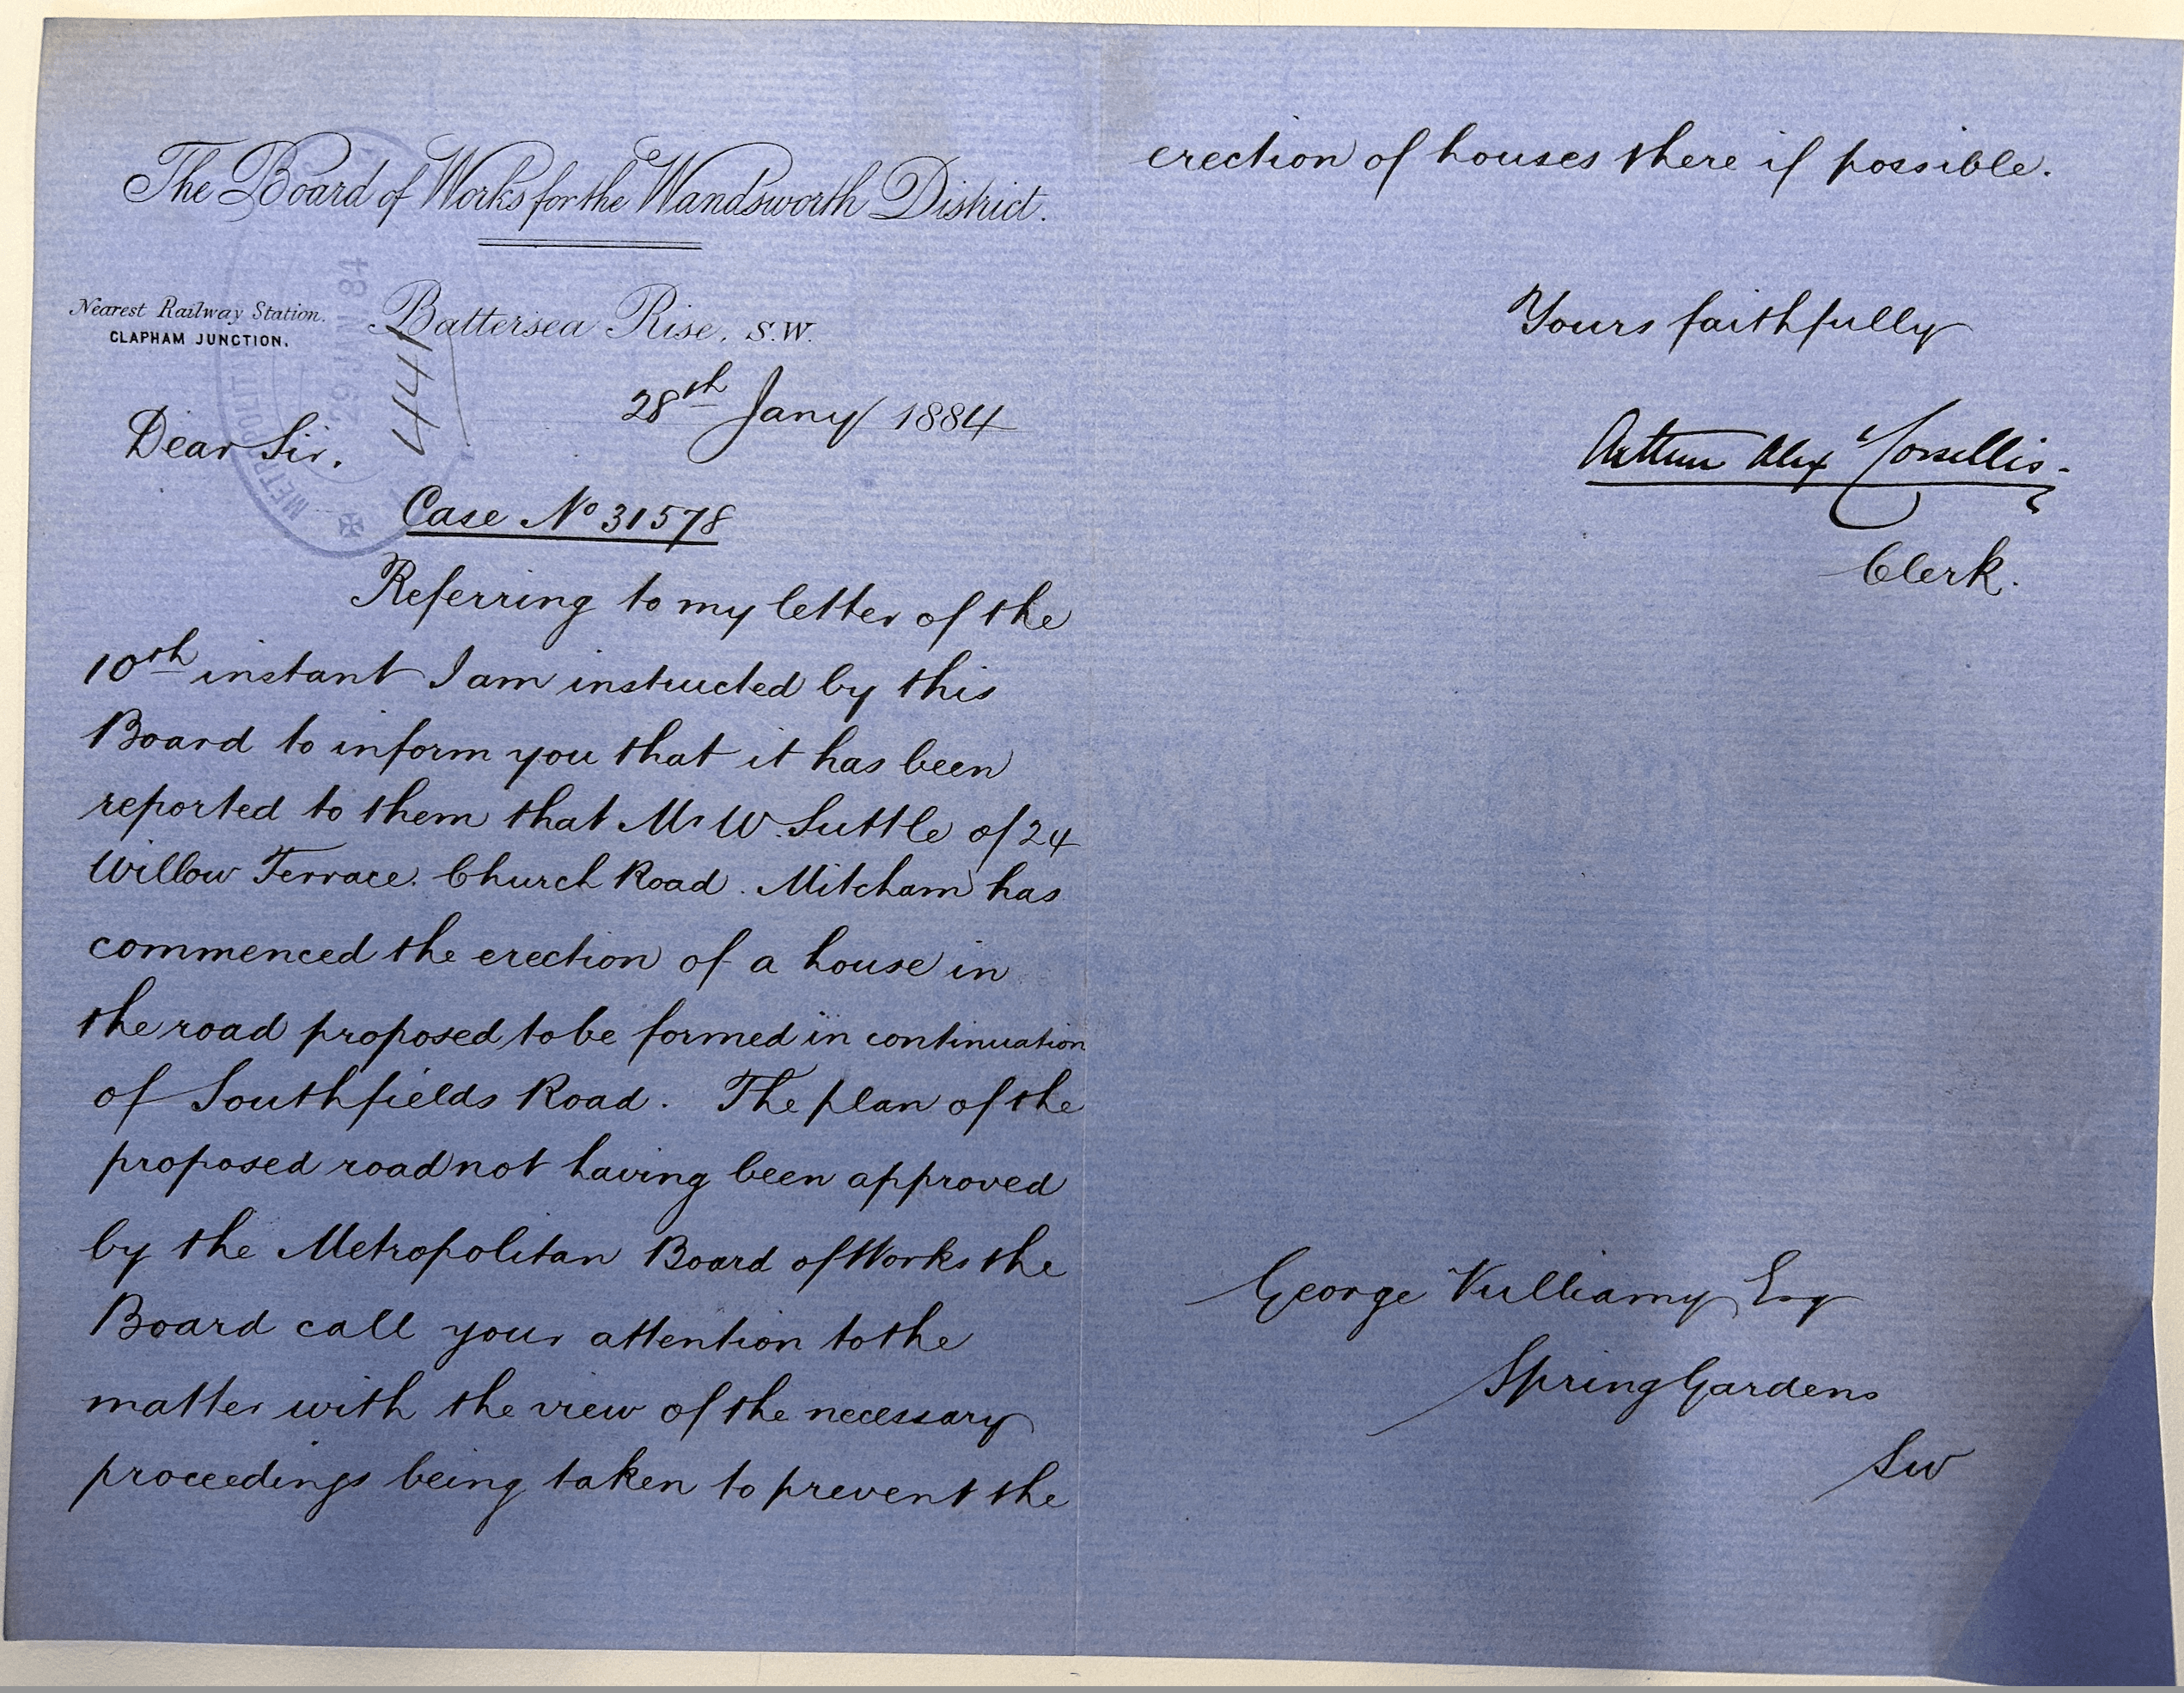 The Board of Works for the Wandsworth District.
Nearest Railway Station.
CLAPHAM JUNCTION.
Battersea Rise, S.W.
METROPOLIT
29 JAN 84
441
28th Jany 1884
Dear Sir,
Case No 31578
Referring to my letter of the
10th instant I am instructed by this
Board to inform you that it has been
reported to them that Mr W. Suttle of 24
Willow Terrace. Church Road. Mitcham has
commenced the erection of a house in
the road proposed to be formed in continuation
of Southfields Road. The plan of the
proposed road not having been approved
by the Metropolitan Board of Works the
Board call your attention to the
matter with the view of the necessary
proceedings being taken to prevent the
erection of houses there if possible.
Yours faithfully
Arthur Alex Corsellis.
Clerk.
George Vulliamy Esq
Spring Gardens
SW